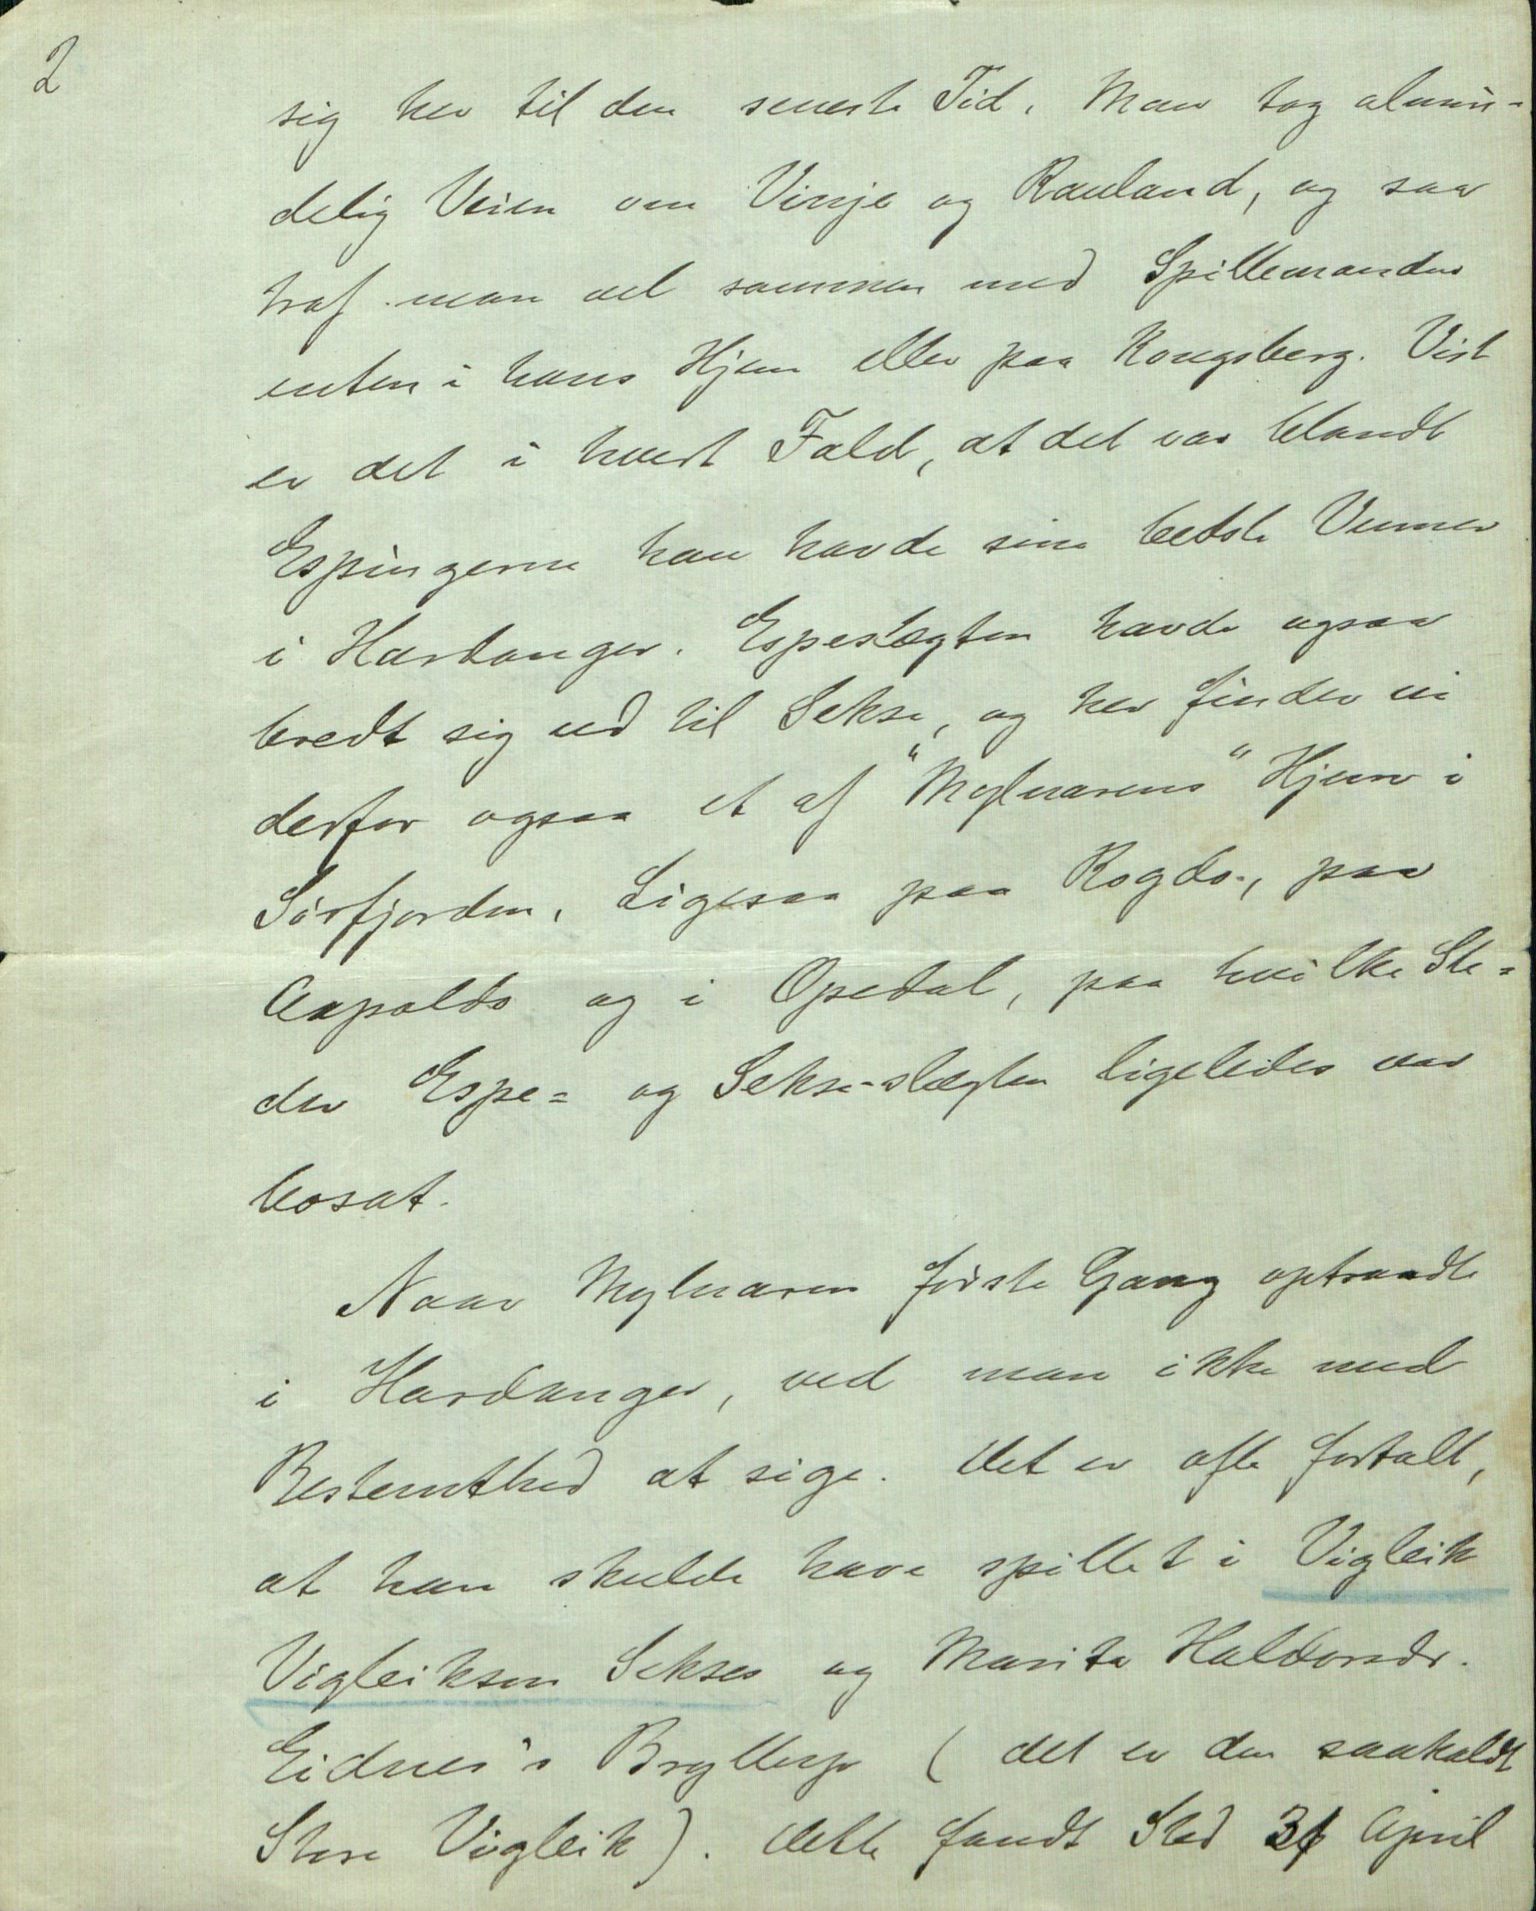 2
sig her til den seneste Tid. Man tog almin-
delig Veien om Vinje og Rauland, og saa
traf man vel sammen med Spillemanden
enten i hans Hjem eller paa Kongsberg. Vist
er det i hvert Fald, at det var blandt
Espingerne han havde sine bedste Venner
i Hardanger. Espeslægten havde ogsaa
bredt sig ud til Sekse, og her finder vi
derfor ogsaa et af "Mylnarens" Hjem i
Sørfjorden. Ligesaa paa Rogde, paa
Aapaldo og i Opedal, paa hvilke Ste=
der Espe= og Sekse-slægten ligeledes var
bosat.
Naar Mylnaren første Gang optraadte
i Hardanger, ved man ikke med
Bestemthed at sige. Det er ofte fortalt,
at han skulde have spillet i Vigleik
Vigleiksen Sekses og Marita Haldorsdr.
Eidnes's Bryllup (det er den saakaldt
Store Vigleik). Dette fandt Sted April